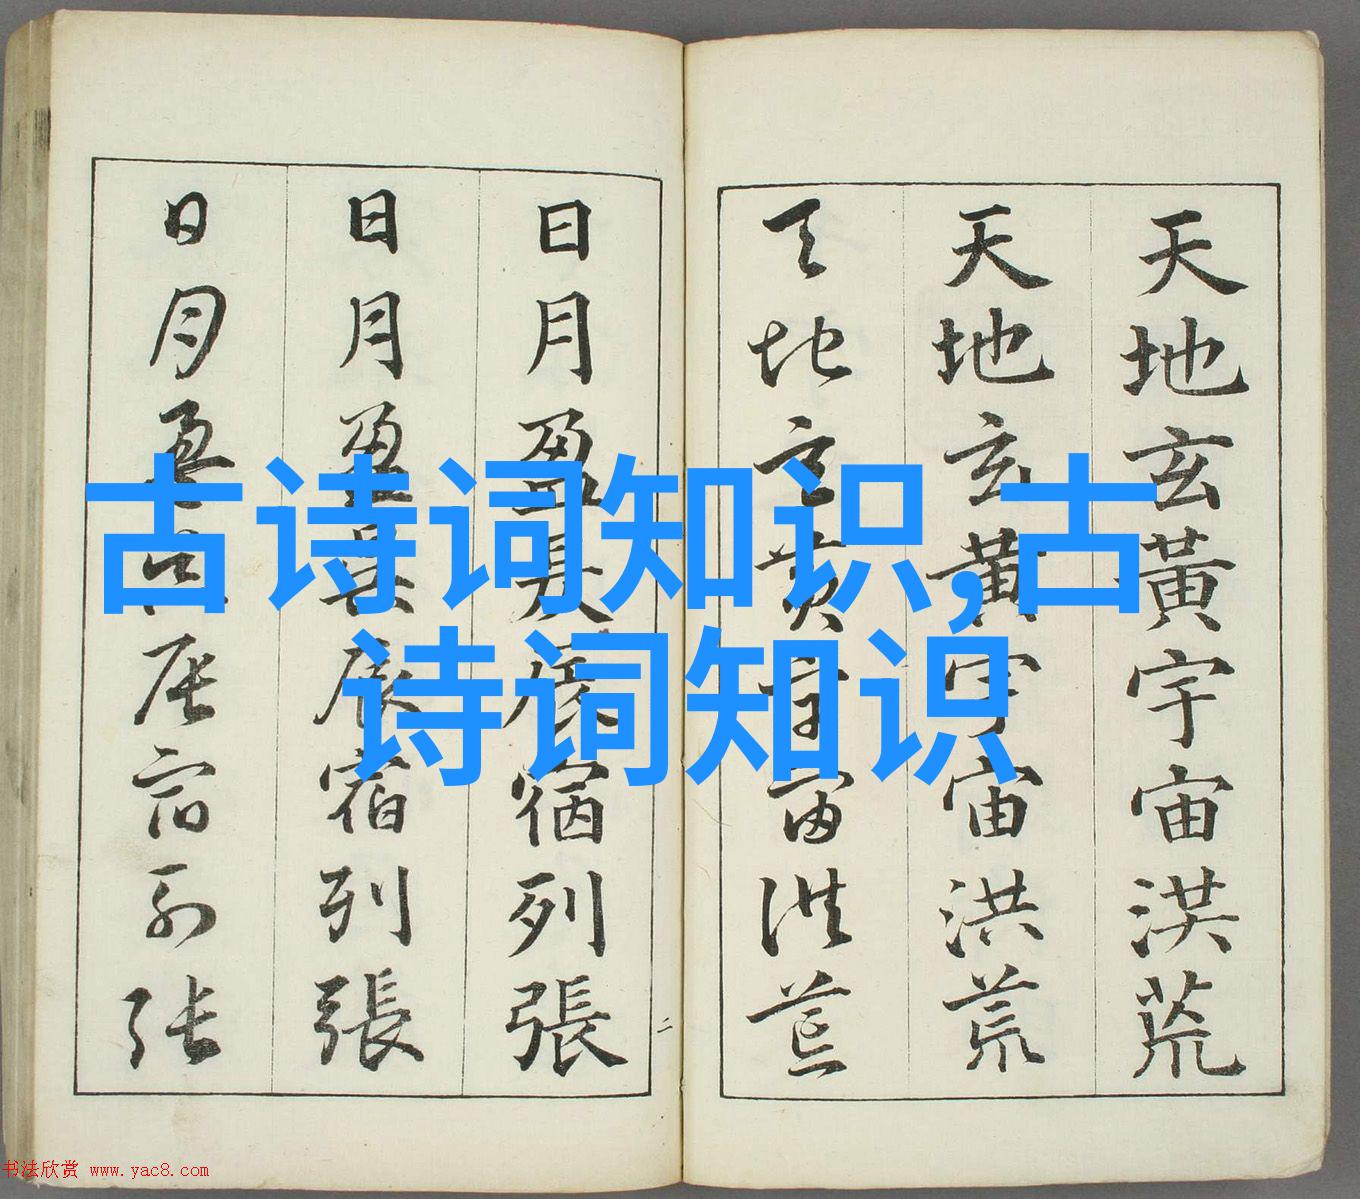 天地玄黃宇宙洪荒
天地玄黃宇宙洪荒
天地玄黄宇宙洪荒
日月盈昃辰宿列張
日月盈昃辰宿列張
日月盈昃辰宿列张
二
古诗词知识,古
诗词知识
书法欣赏 www.yac8.com